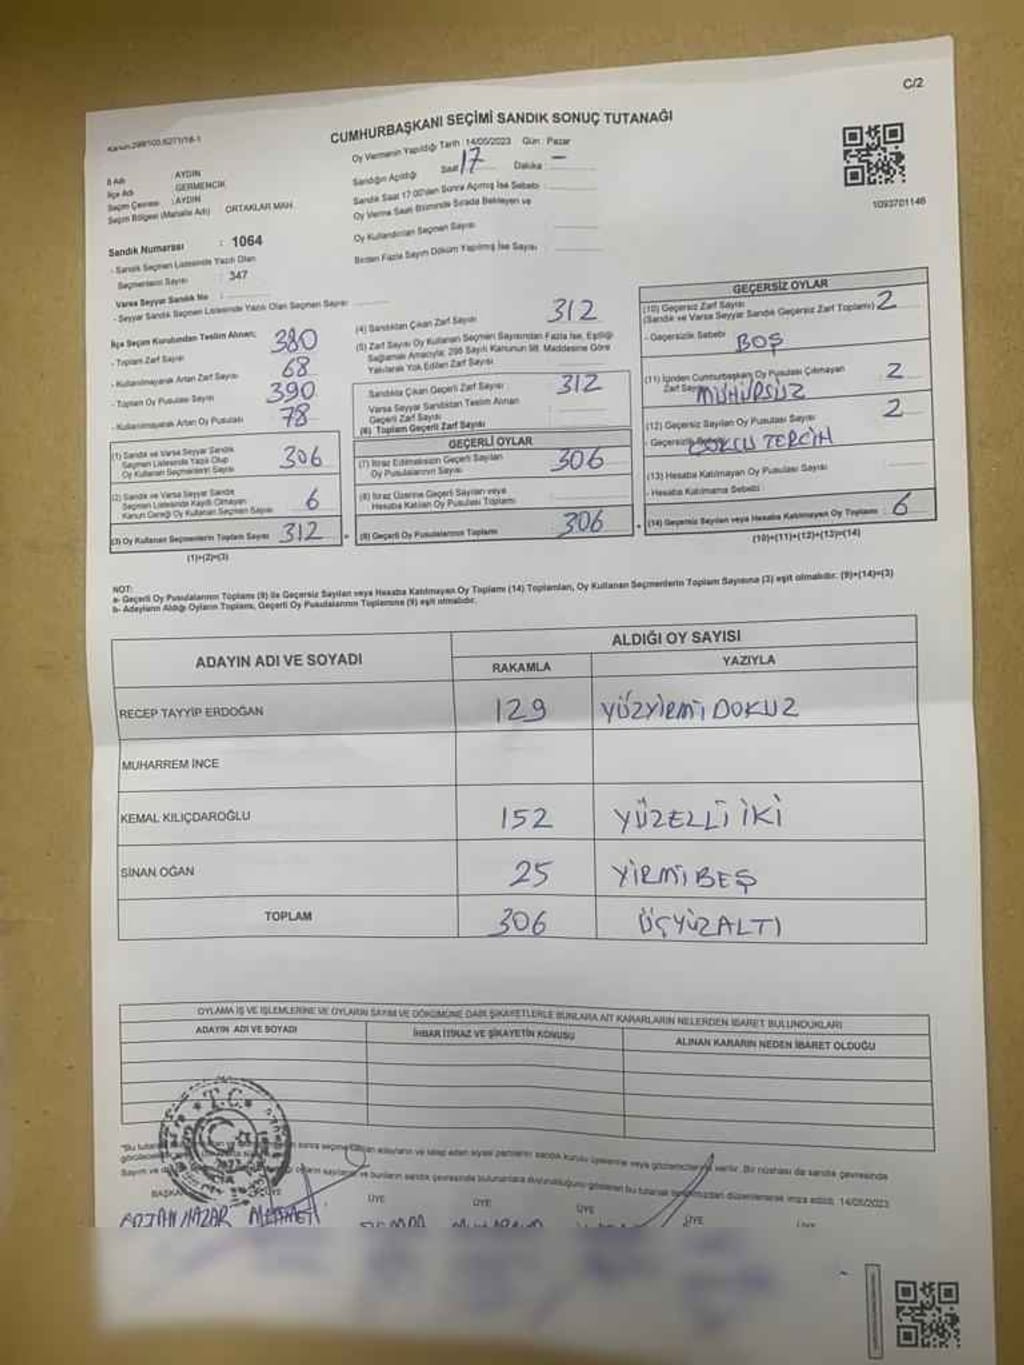 C/2
Kanun:298/100,6271/18-1
CUMHURBAŞKANI SEÇİMİ SANDIK SONUÇ TUTANAĞI
Oy Vermenin Yapıldığı Tarih :14/05/2023 Gün : Pazar
Sandığın Açıldığı Saat 17 Dakika : —
Sandık Saat 17:00'den Sonra Açılmış İse Sebebi :
Oy Verme Saati Bitiminde Sırada Bekleyen ve
Oy Kullandırılan Seçmen Sayısı
Birden Fazla Sayım Döküm Yapılmış İse Sayısı
1093701146
İl Adı : AYDIN
İlçe Adı : GERMENCİK
Seçim Çevresi : AYDIN
Seçim Bölgesi (Mahalle Adı) ORTAKLAR MAH.
Sandık Numarası : 1064
- Sandık Seçmen Listesinde Yazılı Olan
Seçmenlerin Sayısı : 347
Varsa Seyyar Sandık No :
- Seyyar Sandık Listesinde Yazılı Olan Seçmen Sayısı :
İlçe Seçim Kurulundan Teslim Alınan;
- Toplam Zarf Sayısı 380
- Kullanılmayarak Artan Zarf Sayısı 68
- Toplam Oy Pusulası Sayısı 390
- Kullanılmayarak Artan Oy Pusulası 78
(1) Sandık ve Varsa Seyyar Sandık
Seçmen Listesinde Yazılı Olup
Oy Kullanan Seçmenlerin Sayısı 306
(2) Sandık ve Varsa Seyyar Sandık
Seçmen Listesinde Kayıtlı Olmayan
Kanun Gereği Oy Kullanan Seçmen Sayısı 6
(3) Oy Kullanan Seçmenlerin Toplam Sayısı 312
(1)+(2)=(3)
(4) Sandıktan Çıkan Zarf Sayısı 312
(5) Zarf Sayısı Oy Kullanan Seçmen Sayısından Fazla İse, Eşitliği
Sağlamak Amacıyla; 298 Sayılı Kanunun 98. Maddesine Göre
Yakılarak Yok Edilen Zarf Sayısı
Sandıkta Çıkan Geçerli Zarf Sayısı 312
Varsa Seyyar Sandıktan Teslim Alınan
Geçerli Zarf Sayısı
(6) Toplam Geçerli Zarf Sayısı
GEÇERLİ OYLAR
(7) İtiraz Edilmeksizin Geçerli Sayılan
Oy Pusulalarının Sayısı 306
(8) İtiraz Üzerine Geçerli Sayılan veya
Hesaba Katılan Oy Pusulası Toplamı
(9) Geçerli Oy Pusulalarının Toplamı 306
GEÇERSİZ OYLAR
(10) Geçersiz Zarf Sayısı
(Sandık ve Varsa Seyyar Sandık Geçersiz Zarf Toplamı) 2
- Geçersizlik Sebebi BOŞ
(11) İçinden Cumhurbaşkanı Oy Pusulası Çıkmayan
Zarf Sayısı MÜHÜRSÜZ 2
(12) Geçersiz Sayılan Oy Pusulası Sayısı 2
- Geçersizlik TERCİH
(13) Hesaba Katılmayan Oy Pusulası Sayısı
- Hesaba Katılmama Sebebi
(14) Geçersiz Sayılan veya Hesaba Katılmayan Oy Toplamı : 6
(10)+(11)+(12)+(13)=(14)
NOT:
a- Geçerli Oy Pusulalarının Toplamı (9) ile Geçersiz Sayılan veya Hesaba Katılmayan Oy Toplamı (14) Toplamları, Oy Kullanan Seçmenlerin Toplam Sayısına (3) eşit olmalıdır. (9)+(14)=(3)
b- Adayların Aldığı Oyların Toplamı, Geçerli Oy Pusulalarının Toplamına (9) eşit olmalıdır.
ADAYIN ADI VE SOYADI ALDIĞI OY SAYISI
RAKAMLA YAZIYLA
RECEP TAYYİP ERDOĞAN 129 YÜZYİRMİ DOKUZ
MUHARREM İNCE
KEMAL KILIÇDAROĞLU 152 YÜZELLİ İKİ
SİNAN OĞAN 25 YİRMİ BEŞ
TOPLAM 306 ÜÇYÜZ ALTI
OYLAMA İŞ VE İŞLEMLERİNE VE OYLARIN SAYIM VE DÖKÜMÜNE DAİR ŞİKAYETLERLE BUNLARA AİT KARARLARIN NELERDEN İBARET BULUNDUKLARI
ADAYIN ADI VE SOYADI İHBAR İTİRAZ VE ŞİKAYETİN KONUSU ALINAN KARARIN NEDEN İBARET OLDUĞU
T.C.
14/05/2023
ÜYE ÜYE ÜYE ÜYE ÜYE